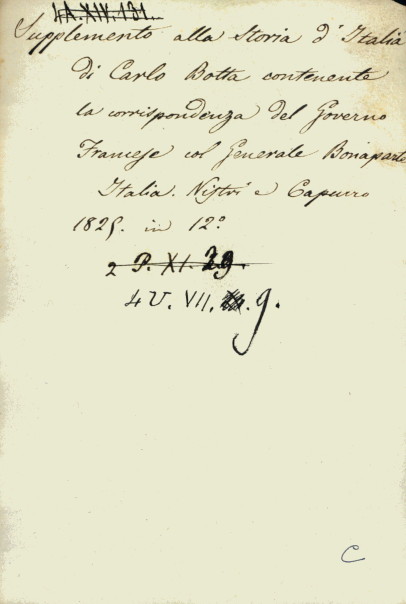 4A.XIV.131.
Supplemento alla Storia d'Italia
di Carlo Botta contenente
la corrispondenza del Governo
Francese col Generale Bonaparte
Italia. Nistri e Capurro
1825. in 12º
2 P. XI. 29.
4 U. VII. 9.
C